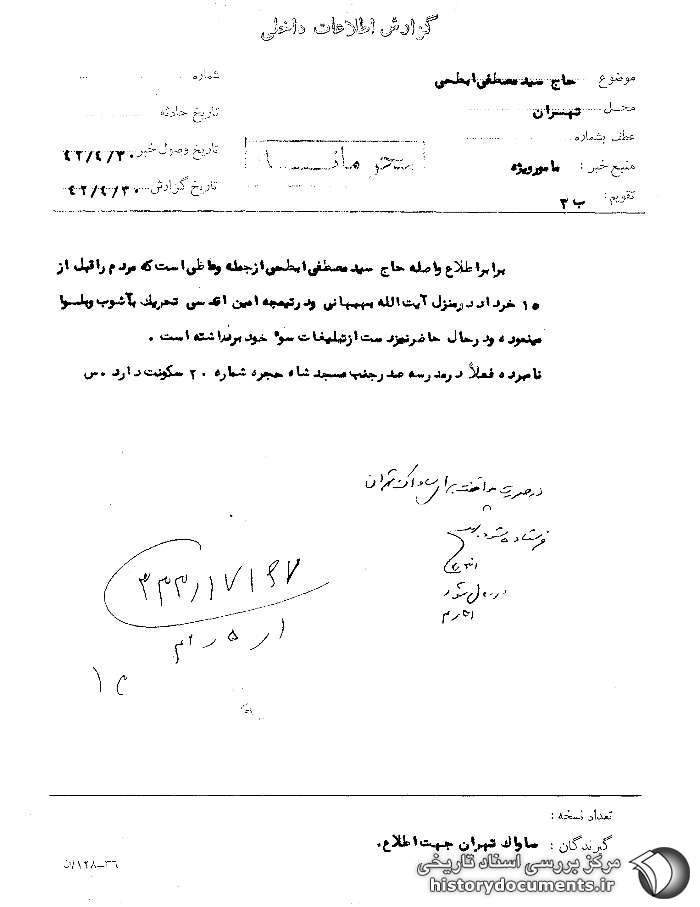 گزارش اطلاعات داخلی
موضوع حاج سید مصطفی ابطحی
شماره
محل تهران
تاریخ حادثه
عطف بشماره
تاریخ وصول خبر ۴۲/۴/۳۰
منبع خبر : مامور ویژه
تاریخ گزارش ۴۲/۴/۳۰
تقویم : ب ۳
برابر اطلاع واصله حاج سید مصطفی ابطحی از جمله وعاظی است که مردم را قبل از
۱۵ خرداد در منزل آیت الله بهبهانی و در تیمچه امین اقدسی تحریک بآشوب و بلوا
مینموده و در حال حاضر نیز دست از تبلیغات سوء خود برنداشته است .
نامبرده فعلاً در مدرسه صدر جنب مسجد شاه حجره شماره ۲۰ سکونت دارد . س
در صورت موافقت برای ساواک تهران
فرستاده شود
۳۳۳/۱۷۱۶۷
تعداد نسخه :
گیرندگان : ساواک تهران جهت اطلاع .
۳۶-۱۲۸/ن
مرکز بررسی اسناد تاریخی
historydocuments.ir